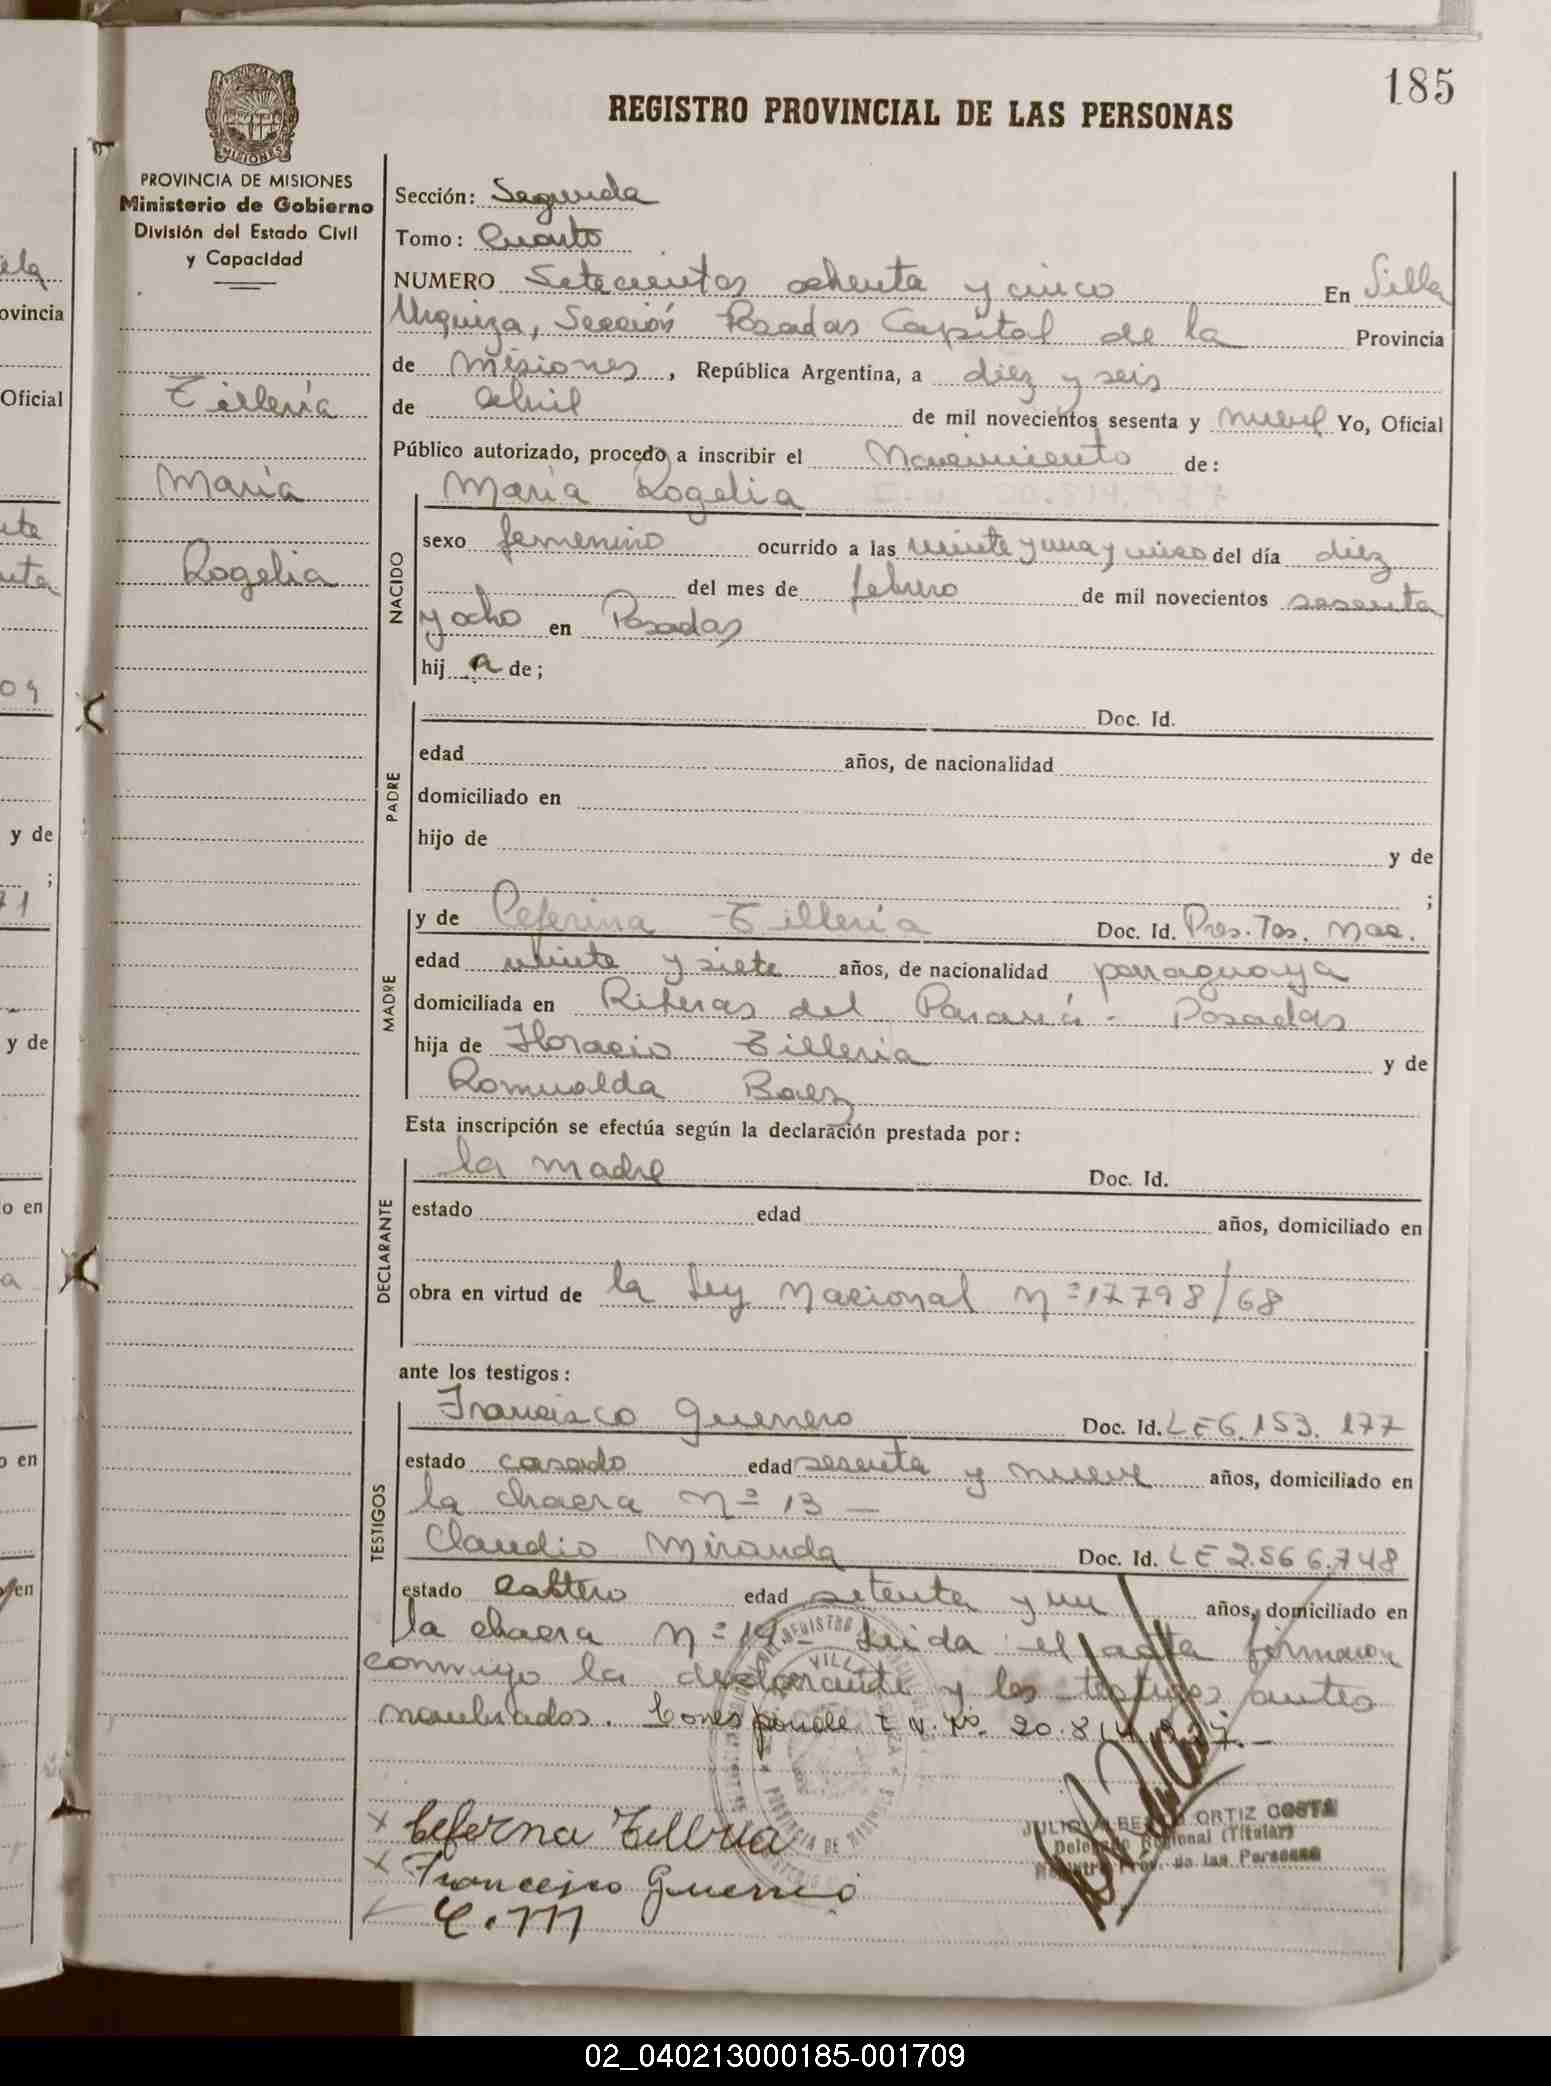 185
REGISTRO PROVINCIAL DE LAS PERSONAS
MISIONES
PROVINCIA DE MISIONES
Ministerio de Gobierno
División del Estado Civil
y Capacidad
Tillería
María
Rogelia
Sección: Segunda
Tomo: Cuarto
NUMERO Setecientos ochenta y cinco En Villa
Urquiza, Sección Posadas Capital de la Provincia
de Misiones, República Argentina, a diez y seis
de abril de mil novecientos sesenta y nueve Yo, Oficial
Público autorizado, procedo a inscribir el Nacimiento de:
María Rogelia
NACIDO
sexo femenino ocurrido a las veinte y una y cinco del día diez
del mes de febrero de mil novecientos sesenta
y ocho en Posadas
hij a de;
PADRE
Doc. Id.
edad años, de nacionalidad
domiciliado en
hijo de y de
;
MADRE
y de Ceferina Tillería Doc. Id. Pres. Tos. Nac.
edad veinte y siete años, de nacionalidad paraguaya
domiciliada en Riberas del Paraná - Posadas
hija de Horacio Tilleria y de
Romualda Baez
Esta inscripción se efectúa según la declaración prestada por:
DECLARANTE
la madre Doc. Id.
estado edad años, domiciliado en
obra en virtud de la Ley Nacional Nº 17798/68
ante los testigos:
TESTIGOS
Francisco Guerrero Doc. Id. LE 6.153.177
estado casado edad sesenta y nueve años, domiciliado en
la chacra Nº 13 —
Claudio Miranda Doc. Id. LE 2.566.748
estado soltero edad setenta y un años, domiciliado en
la chacra Nº 19 - Leida el acta firmaron
conmigo la declarante y los testigos antes
nombrados. Corresponde I.N. Nº. 20.814.927.—
Ceferna Tilleria
Francisco Guerrero
C. M
JULIO ALBERTO ORTIZ COSTA
Delegado Regional (Titular)
Registro Prov. de las Personas
PROVINCIA DE MISIONES
ela
ovincia
Oficial
09
y de
;
71
y de
o en
a
o en
en
02_040213000185-001709